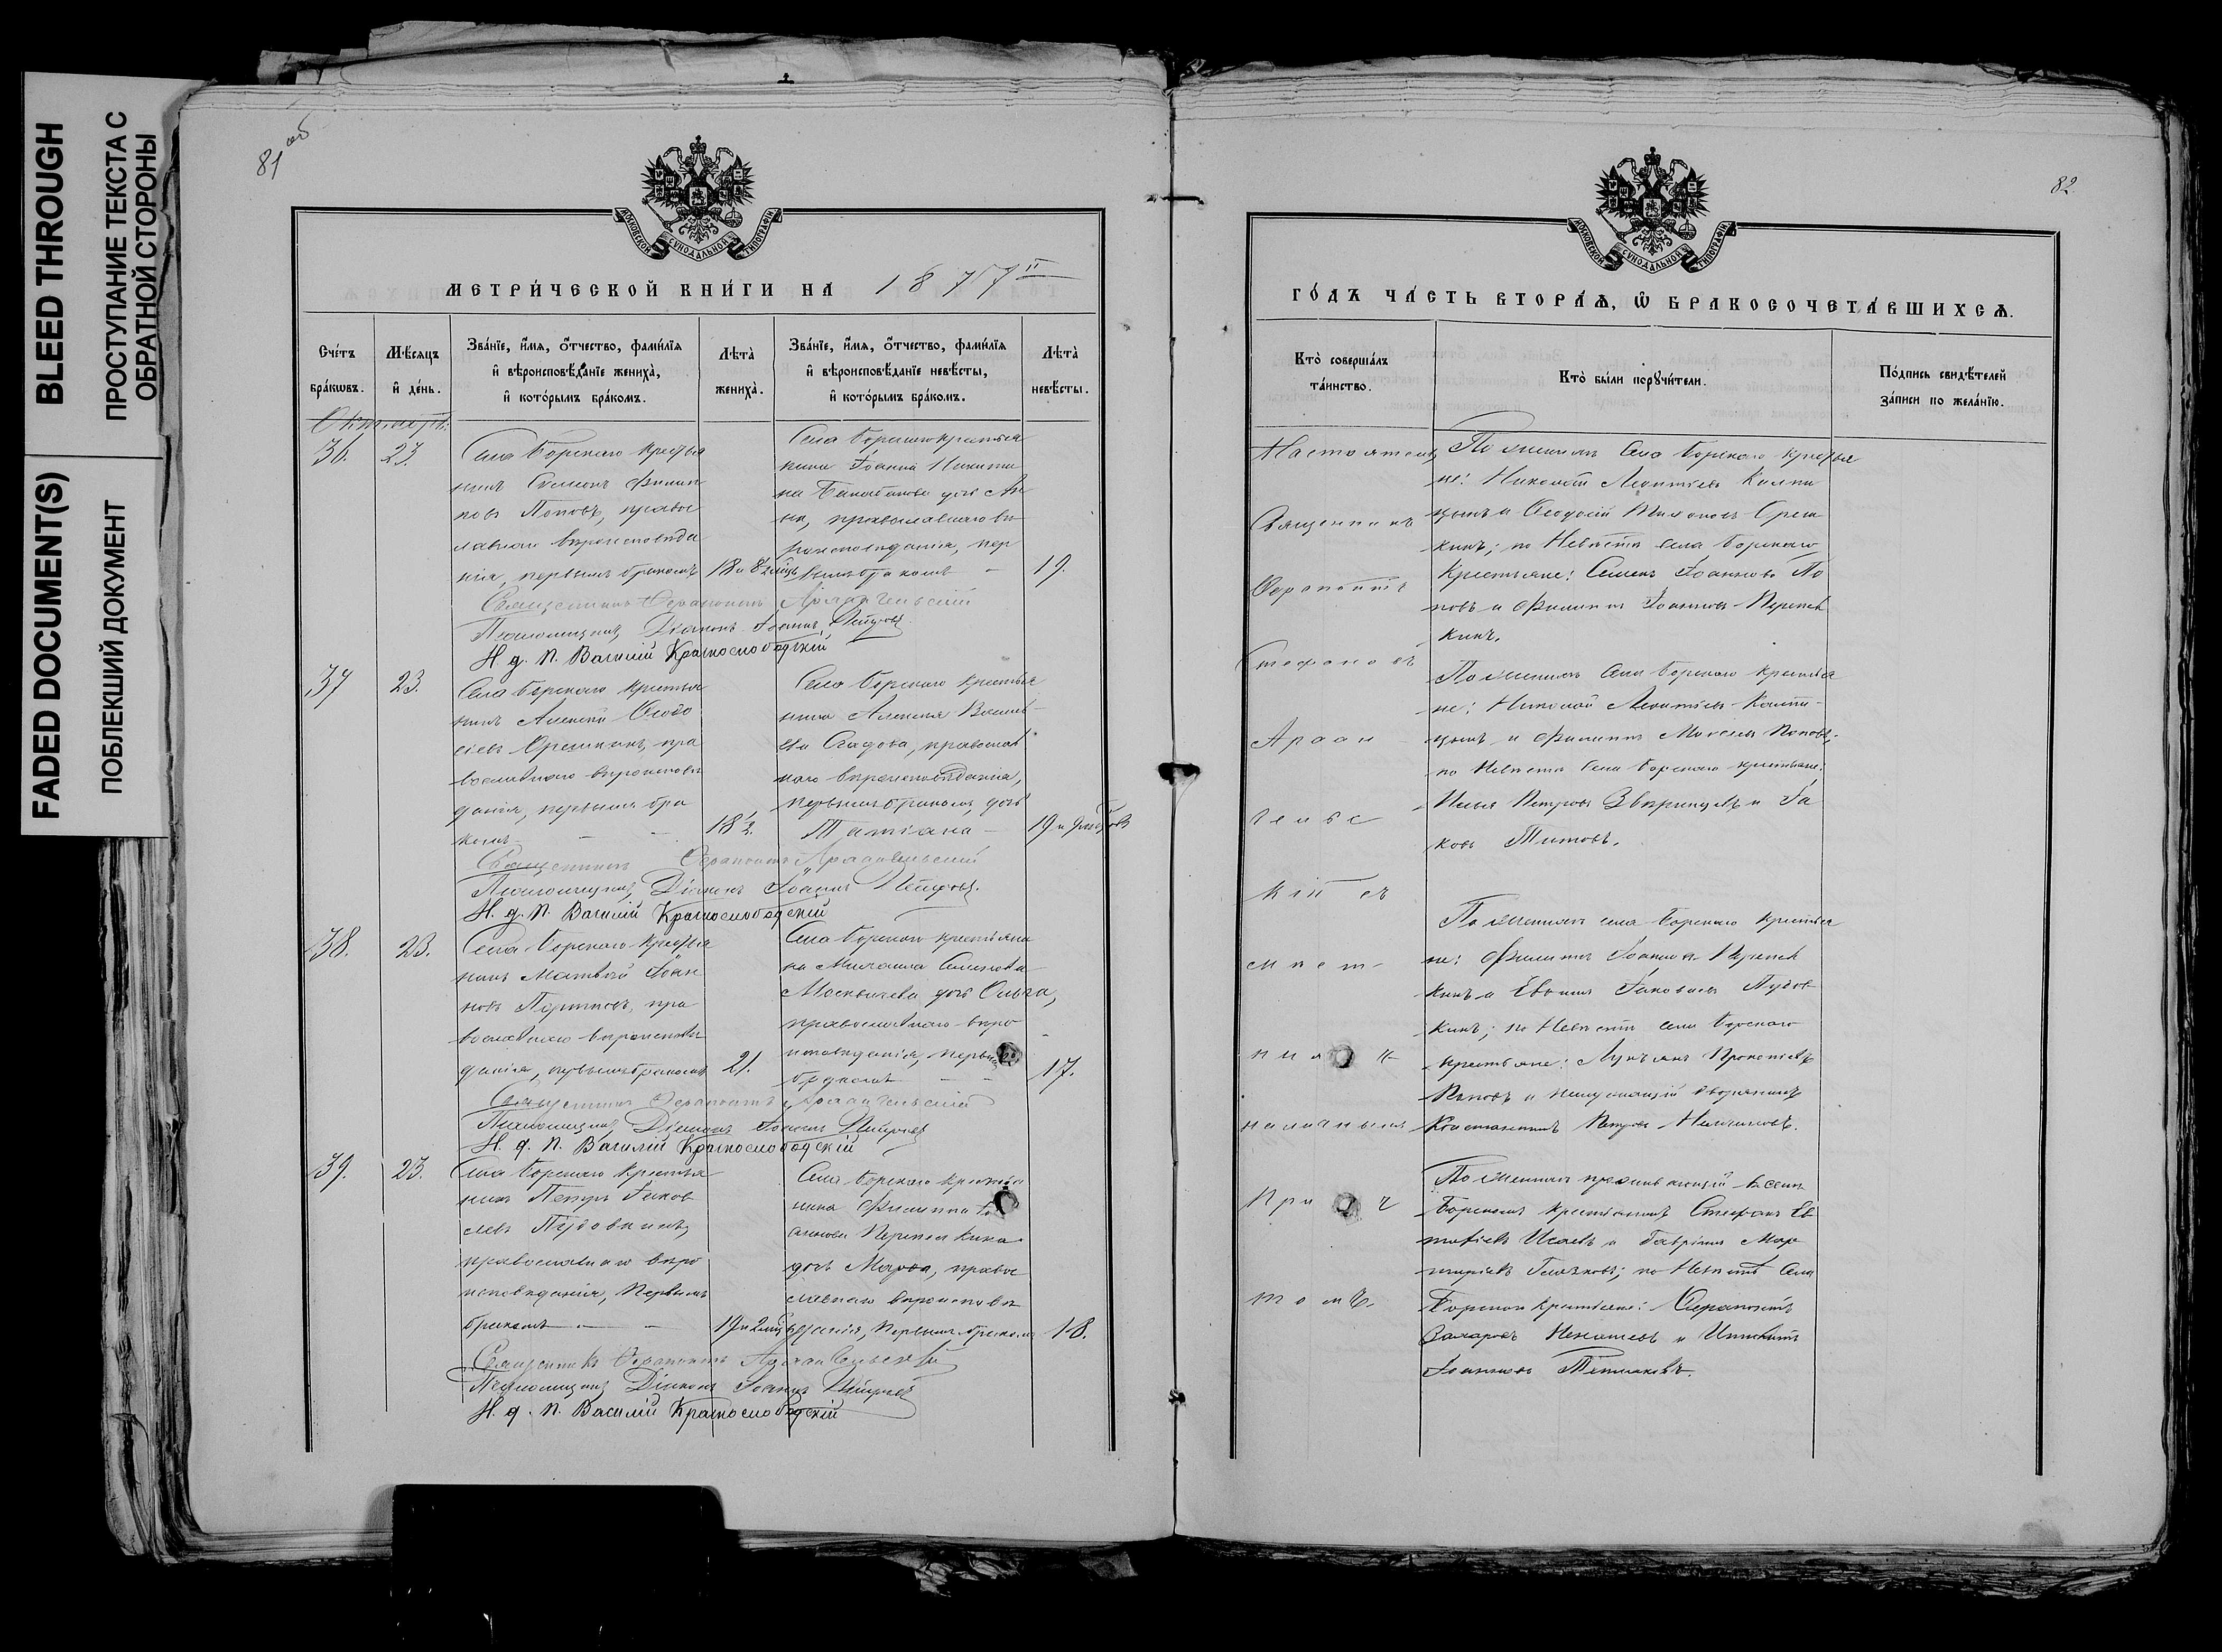 BLEED THROUGH
ПРОСТУПАНИЕ ТЕКСТА С
ОБРАТНОЙ СТОРОНЫ
FADED DOCUMENT(S)
ПОБЛЕКШИЙ ДОКУМЕНТ
81 об
МОСКОВСКОЙ СѴНОДАЛЬНОЙ ТИПОГРАФІИ
МЕТРИ́ЧЕСКОЙ КНИ́ГИ НА 1877
Сче́тъ
бра́кωвъ.
Мѣ́сяцъ
и҆ де́нь.
Зва́нїе, и҆́мя, ѻ҆́тчество, фами́лїя
и҆ вѣроисповѣ́данїе жениха̀,
и҆ кото́рымъ бра́комъ.
Лѣ́та
жениха̀.
Зва́нїе, и҆́мя, ѻ҆́тчество, фами́лїя
и҆ вѣроисповѣ́данїе невѣ́сты,
и҆ кото́рымъ бра́комъ.
Лѣ́та
невѣ́сты.
36. 23.
Села Борскаго крестья
нинъ Симеонъ Филип
повъ Поповъ, правос
лавнаго вѣроисповѣда
нія, первымъ бракомъ
Села Борскаго крестья
нина Іоанна Никити
на дочь Ан
на, православнаго вѣ
роисповѣданія, пер
вымъ бракомъ
19.
Священникъ Ферапонтъ Архангельскій
Псаломщикъ Діаконъ Іоаннъ
Н. д. П. Василій Краснослободскій
37 23.
Села Борскаго крестья
нинъ Алексій Ѳеодо
сіевъ Орешкинъ, пра
вославнаго вѣроисповѣ
данія, первымъ бра
комъ
18½.
Села Борскаго крестья
нина Алексія Василь
ева православ
наго вѣроисповѣданія,
первымъ бракомъ, дочь
Татіана
Священникъ Ферапонтъ Архангельскій
Псаломщикъ Діаконъ Іоаннъ
Н. д. П. Василій Краснослободскій
38. 23.
Села Борскаго крестья
нинъ Матвѣй Іоан
новъ пра
вославнаго вѣроисповѣ
данія, первымъ бракомъ
21.
Села Борскаго крестьяни
на Михаила Семенова
Москвичева дочь Ольга,
православнаго вѣро
исповѣданія, первымъ
бракомъ
17.
Священникъ Ферапонтъ Архангельскій
Псаломщикъ Діаконъ Іоаннъ
Н. д. П. Василій Краснослободскій
39. 23.
Села Борскаго крестья
нинъ Петръ Іаков
левъ Пудовкинъ,
православнаго вѣро
исповѣданія, первымъ
бракомъ
Села Борскаго крестья
нина Филиппа Іо
аннова Перепелкина
дочь Марѳа, правос
лавнаго вѣроисповѣ
данія, первымъ бракомъ
18.
Священникъ Ферапонтъ Архангельскій
Псаломщикъ Діаконъ Іоаннъ
Н. д. П. Василій Краснослободскій
82.
МОСКОВСКОЙ СѴНОДАЛЬНОЙ ТИПОГРАФІИ
ГО́ДЪ ЧА́СТЬ ВТОРА́Ѧ, Ѽ БРАКОСОЧЕТА́ВШИХСѦ.
Кто̀ соверша́лъ
та́инство.
Кто̀ бы́ли порꙋчи́тели.
По́дпись свидѣ́телей
за́писи по жела́нїю.
Настоятель
Священникъ
Ферапонтъ
Стефановъ
Архан
гельс
кій съ
ниже
наличнымъ
При ч
томъ.
По женихѣ Села Борскаго крестья
не: Николай Леонтіевъ Калпи
цынъ и Ѳеодосій Тихоновъ Ореш
кинъ; по Невѣстѣ села Борскаго
Крестьяне: Семенъ Іоанновъ По
повъ и Филиппъ Іоанновъ Перепел
кинъ.
По женихѣ Села Борскаго крестья
не: Николай Леонтіевъ Калпи
цынъ и Филиппъ Моисеевъ Поповъ;
по Невѣстѣ Села Борскаго крестьяне:
Илья Петровъ Звѣринцевъ и Іа
ковъ Титовъ.
По женихѣ села Борскаго крестья
не: Филиппъ Іоанновъ Перепел
кинъ и Евѳимій Іаковлевъ Пудов
кинъ; по Невѣстѣ села Борскаго
крестьяне: Лукъянъ Прокопіевъ
Поповъ и дворянинъ
Константинъ Петровъ
По женихѣ проживающій въ селѣ
Борскомъ крестьянинъ Стефанъ Ев
Исаевъ и Гавріилъ Мар
по Невѣстѣ Села
Борскаго крестьяне: Ферапонтъ
Захаровъ и
Іоанновъ